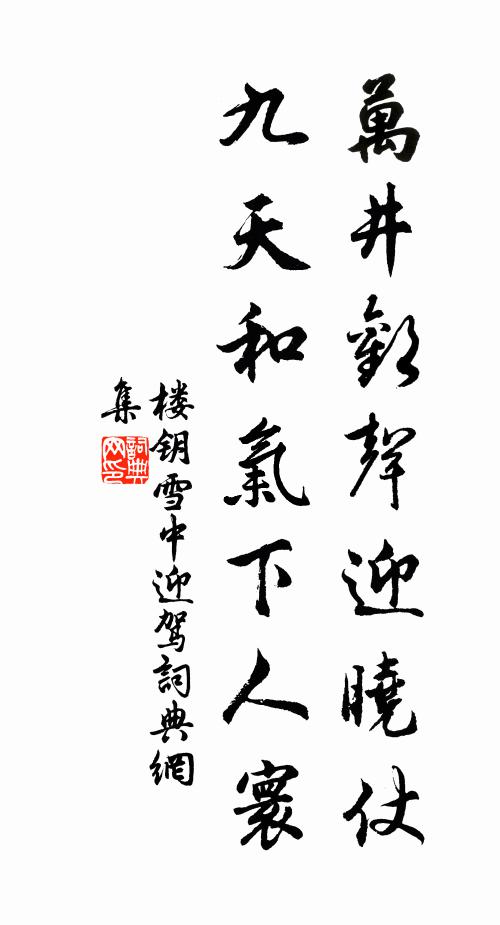 萬井歡聲迎曉仗
九天和氣下人寰
楼钥雪中迎驾詞典網
集
詞典网印